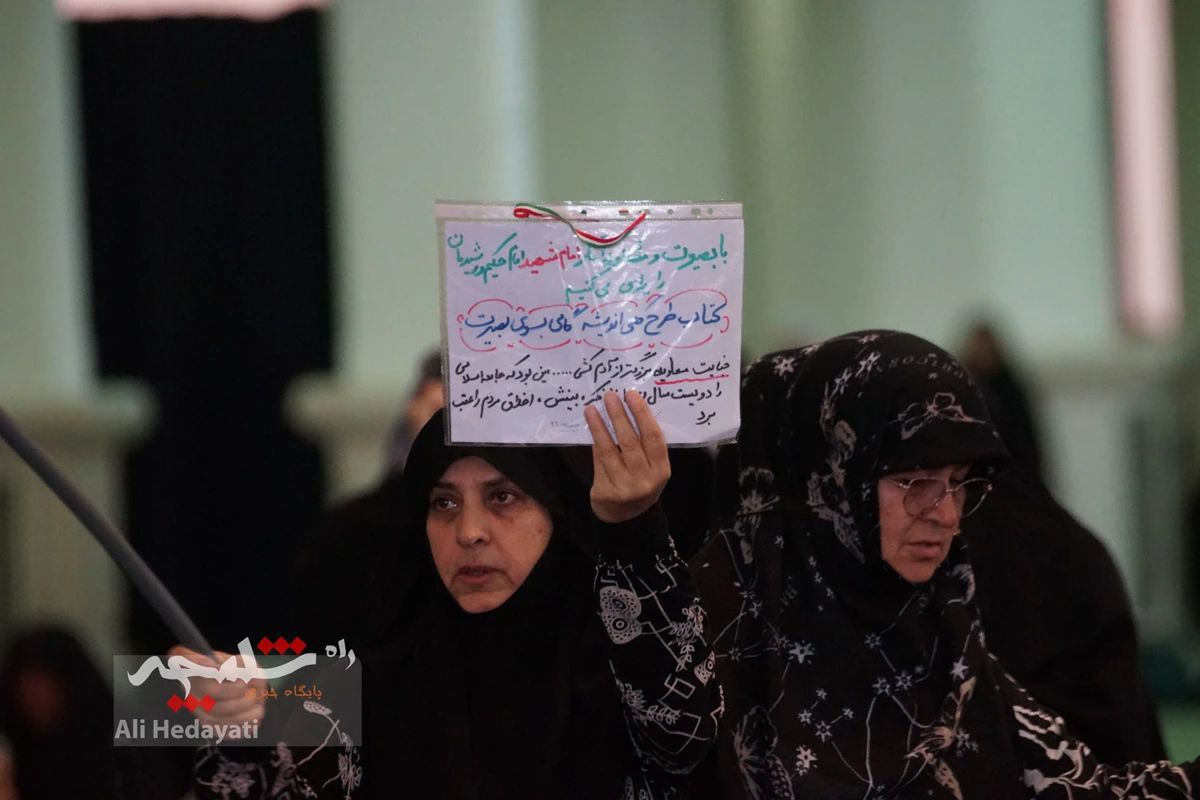 با بصیرت و امام شهید امام حکیم و رشیدمان
را یاری می‌کنیم
کتاب طرح کلی اندیشه گامی بسوی بصیرت
خیانت معاویه بزرگتر از آدم کشی ..... این بود که جامعه اسلامی
را دویست سال از لحاظ فکر، بینش، اخلاق مردم را عقب
برد
راه شلمچه
پایگاه خبری
Ali Hedayati